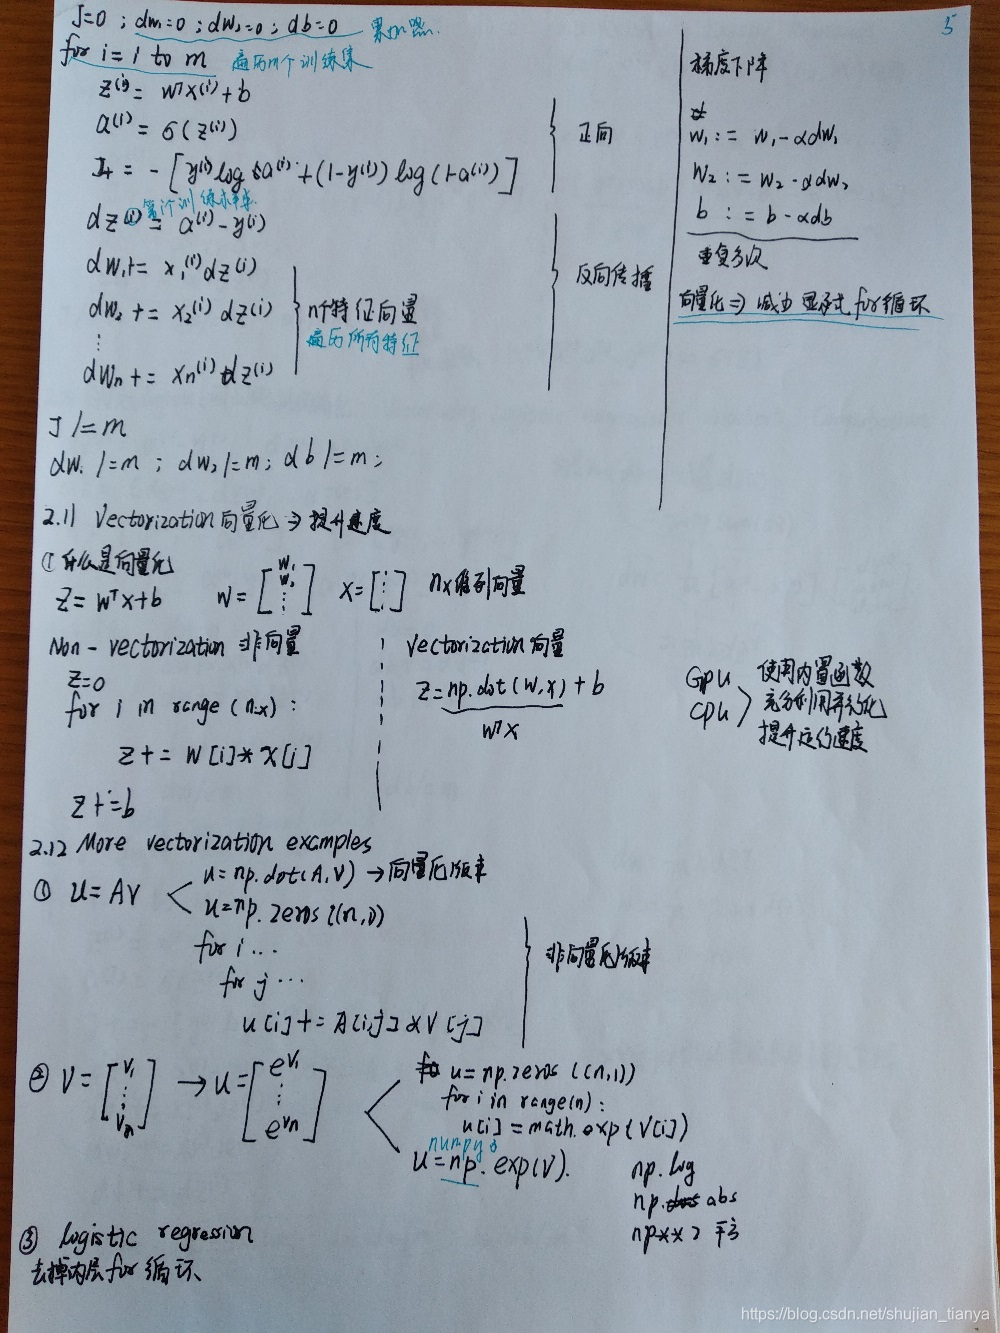 5
J=0 ; dw₁=0 ; dw₂=0 ; db=0 累加器.
for i = 1 to m 遍历m个训练集
z⁽ⁱ⁾ = wᵀx⁽ⁱ⁾+b
a⁽ⁱ⁾ = σ(z⁽ⁱ⁾)
J+ = -[y⁽ⁱ⁾log a⁽ⁱ⁾+(1-y⁽ⁱ⁾)log(1-a⁽ⁱ⁾)]
正向
第i个训练样本
dz⁽ⁱ⁾ = a⁽ⁱ⁾-y⁽ⁱ⁾
dw₁+= x₁⁽ⁱ⁾dz⁽ⁱ⁾
dw₂ += x₂⁽ⁱ⁾ dz⁽ⁱ⁾
⋮
dwₙ += xn⁽ⁱ⁾ dz⁽ⁱ⁾
n个特征向量
遍历所有特征
反向传播
J /= m
dw₁ /=m ; dw₂ /=m ; db /=m ;
梯度下降
w₁ := w₁-αdw₁
w₂ := w₂-αdw₂
b := b-αdb
重复多次
向量化⇒减少显式for循环
2.11 Vectorization向量化⇒提升速度
① 什么是向量化
z = wᵀx+b w = [w₁ w₂ ⋮] x = [⋮] nx维列向量
Non-vectorization 非向量
z=0
for i in range (n-x) :
z += w[i]* x[i]
z += b
Vectorization 向量
z = np.dot(w,x) + b
wᵀx
GPU
CPU
使用内置函数
充分利用并行化
提升运行速度
2.12 More vectorization examples
① u = Av
u = np.dot(A,V) → 向量化版本
u = np.zeros((n,1))
for i ...
for j ...
u[i] += A[i,j] x V[j]
非向量化版本
② V = [v₁ ⋮ vn] → u = [eᵛ¹ ⋮ eᵛⁿ]
u = np.zeros((n,1))
for i in range(n) :
u[i] = math.exp(V[i])
numpy
u = np.exp(V).
np.log
np.abs
np**2 平方
③ logistic regression
去掉内层for循环
https://blog.csdn.net/shujian_tianya